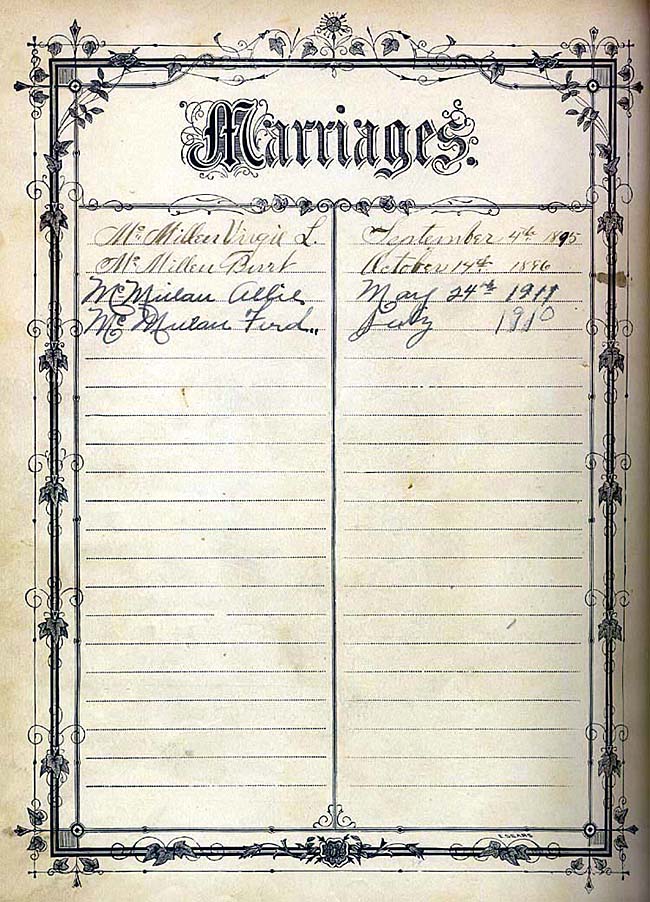 Marriages.
Mc Millen Virgil L. September 4th 1895
Mc Millen Burt October 14th 1896
McMillan Allie May 24th 1911
Mc Millan Ferd.. July 1910
E. SEARS